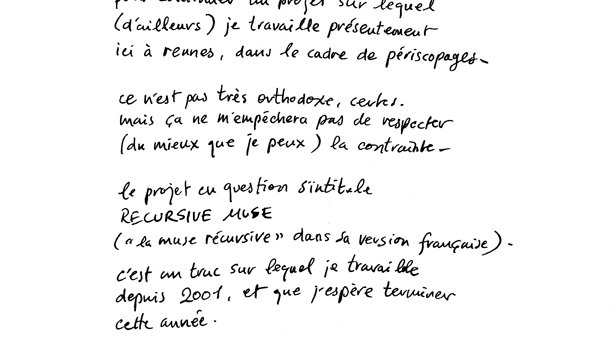 pour continuer un projet sur lequel
(d'ailleurs) je travaille présentement
ici à rennes, dans le cadre de périscopages_
ce n'est pas très orthodoxe, certes.
mais ça ne m'empêchera pas de respecter
(du mieux que je peux) la contrainte_
le projet en question s'intitule
RECURSIVE MUSE
("la muse récursive" dans sa version française).
c'est un truc sur lequel je travaille
depuis 2001, et que j'espère terminer
cette année.